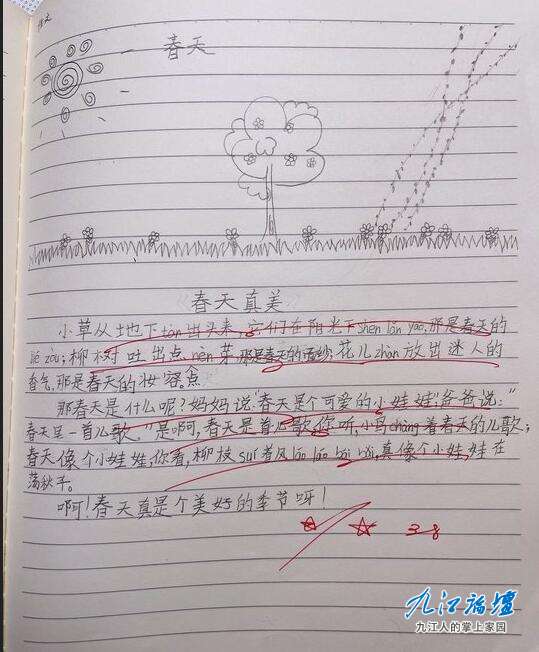 作文
春天
春天真美
小草从地下tàn出头来,它们在阳光下shēn lǎn yāo,那是春天的
柳树吐出点nèn芽,那是春天的
花儿zhàn放出迷人的
香气,那是春天的妆容。
那春天是什么呢?妈妈说:“春天是个可爱的小娃娃”,爸爸说:“
春天是一首儿歌。”是啊,春天是首儿歌,你听,小鸟chàng着春天的儿歌;
春天像个小娃娃,你看,柳枝suí着风yáo yáo bǎi bǎi,真像个小娃娃在
荡秋千。
啊!春天真是个美好的季节呀!
3.8
九江论坛
九江人的掌上家园